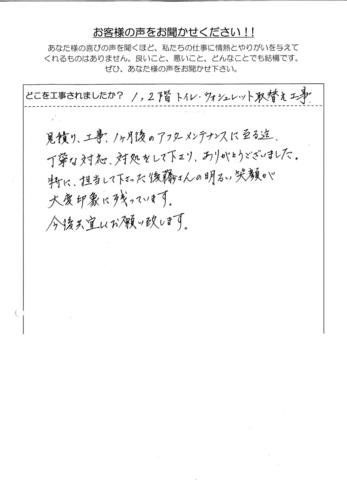 お客様の声をお聞かせください!!
あなた様の喜びの声を聞くほど、私たちの仕事に情熱とやりがいを与えて
くれるものはありません。良いこと、悪いこと、どんなことでも結構です。
ぜひ、あなた様の声をお聞かせ下さい。
どこを工事されましたか? 1,2階トイレ・ウォシュレット取替え工事
見積り、工事、1ヶ月後のアフターメンテナンスに至る迄、
丁寧な対処、対処をして下さり、ありがとうございました。
特に、担当して下さった後藤さんの明るい笑顔が
大変印象に残っています。
今後共宜しくお願い致します。